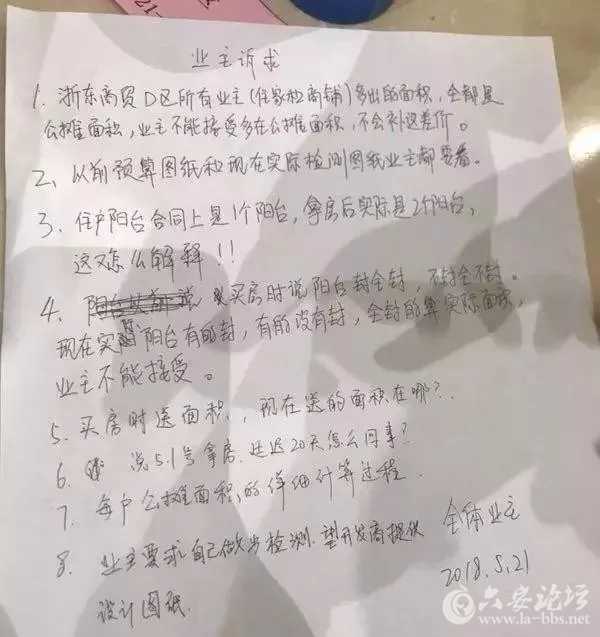 业主诉求
1、浙东商贸D区所有业主(住家和商铺)多出的面积,全部是
公摊面积,业主不能接受多在公摊面积,不会补这差价。
2、以前预算图纸和现在实际检测图纸业主都要看。
3、住户阳台合同上是1个阳台,拿房后实际是2个阳台,
这又怎么解释!!
4、买房时说阳台封全封,不封全不封。
现在实际阳台有的封,有的没有封,全封的算实际面积,
业主不能接受。
5、买房时送面积,现在送的面积在哪?
6、说5.1号拿房.延迟20天怎么回事?
7、每户公摊面积的详细计算过程.
8、业主要求自己做步检测.望开发商提供
设计图纸.
全体业主
2018.5.21
六安论坛
www.la-bbs.net